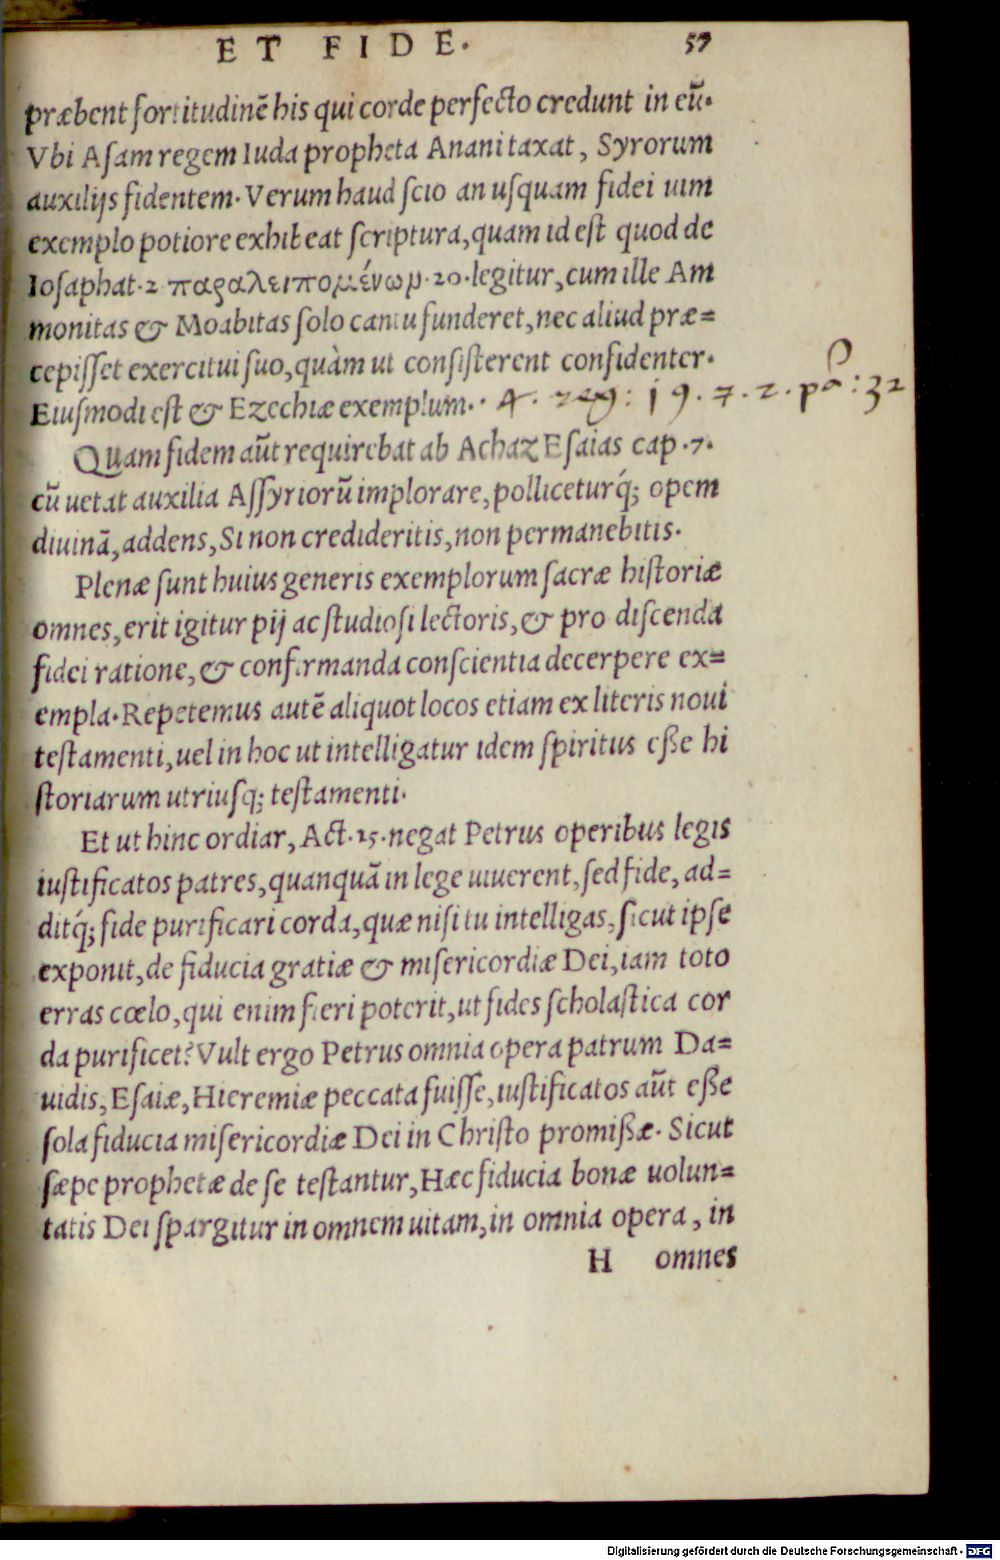 ET FIDE.
57
præbent fortitudinẽ his qui corde perfecto credunt in eũ.
Vbi Asam regem Iuda propheta Anani taxat, Syrorum
auxilijs fidentem. Verum haud scio an usquam fidei uim
exemplo potiore exhibeat scriptura, quam id est quod de
Iosaphat.2 παραλειπομένωμ.20.legitur, cum ille Am
monitas & Moabitas solo cantu funderet, nec aliud præ=
cepisset exercitui suo, quàm ut consisterent confidenter.
Eiusmodi est & Ezechiæ exemplum. 4. reg: 19. 7. 2. pa: 32
Quam fidem aũt requirebat ab Achaz Esaias cap.7.
cũ uetat auxilia Assyriorũ implorare, polliceturq́; opem
diuinã, addens, Si non credideritis, non permanebitis.
Plenæ sunt huius generis exemplorum sacræ historiæ
omnes, erit igitur pij ac studiosi lectoris, & pro discenda
fidei ratione, & confirmanda conscientia decerpere ex=
empla. Repetemus autẽ aliquot locos etiam ex literis noui
testamenti, uel in hoc ut intelligatur idem spiritus eße hi
storiarum utriusq; testamenti.
Et ut hinc ordiar, Act.15.negat Petrus operibus legis
iustificatos patres, quanquã in lege uiuerent, sed fide, ad=
ditq́; fide purificari corda, quæ nisi tu intelligas, sicut ipse
exponit, de fiducia gratiæ & misericordiæ Dei, iam toto
erras cœlo, qui enim fieri poterit, ut fides scholastica cor
da purificet? Vult ergo Petrus omnia opera patrum Da=
uidis, Esaiæ, Hieremiæ peccata fuisse, iustificatos aũt eße
sola fiducia misericordiæ Dei in Christo promißæ. Sicut
sæpe prophetæ de se testantur, Hæc fiducia bonæ uolun=
tatis Dei spargitur in omnem uitam, in omnia opera, in
H omnes
Digitalisierung gefördert durch die Deutsche Forschungsgemeinschaft - DFG